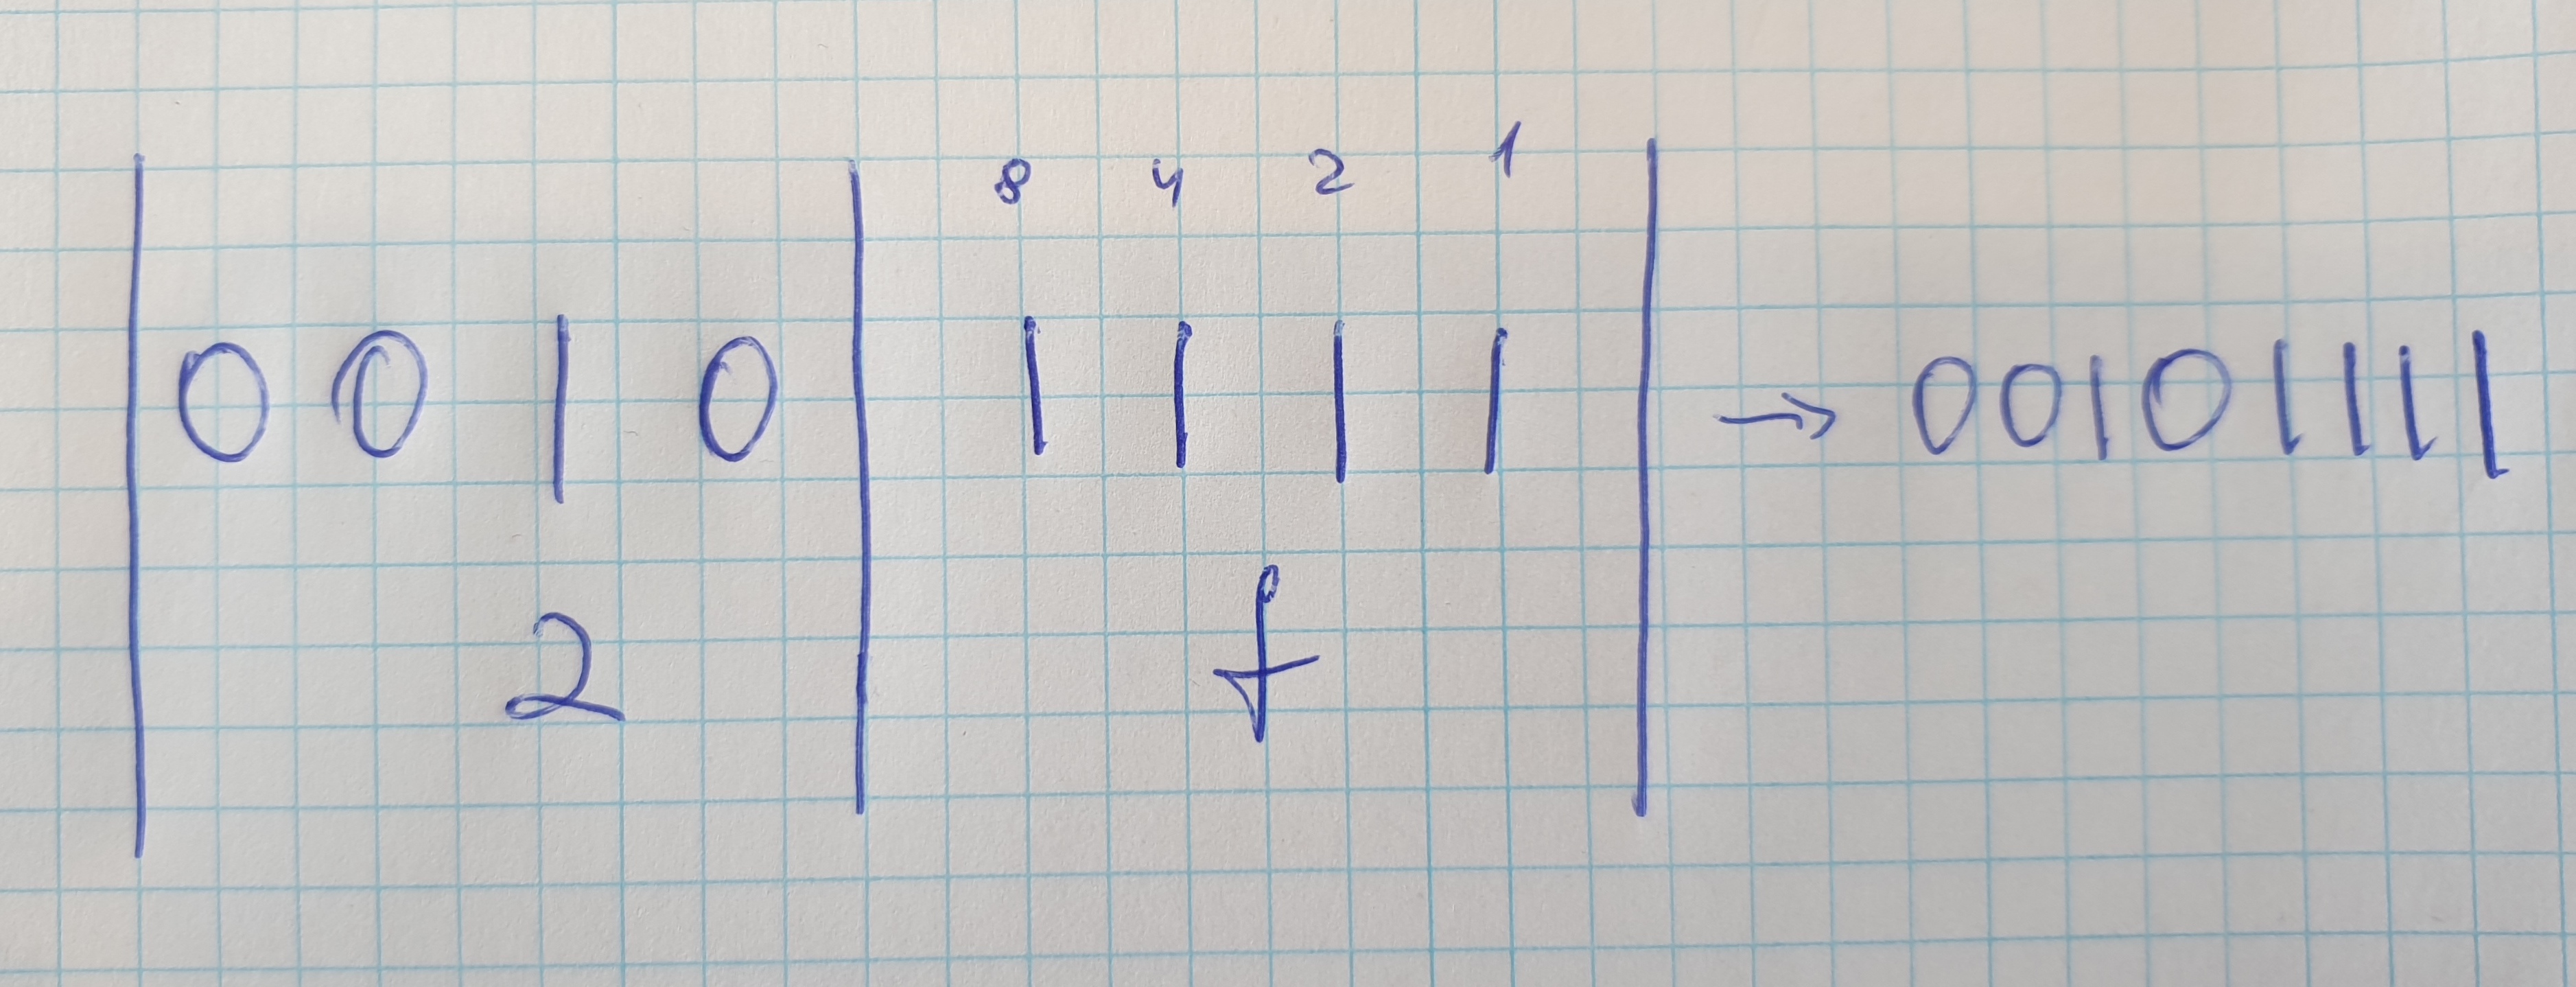 8 4 2 1
| 0 0 1 0 | 1 1 1 1 | → 00101111
2 f